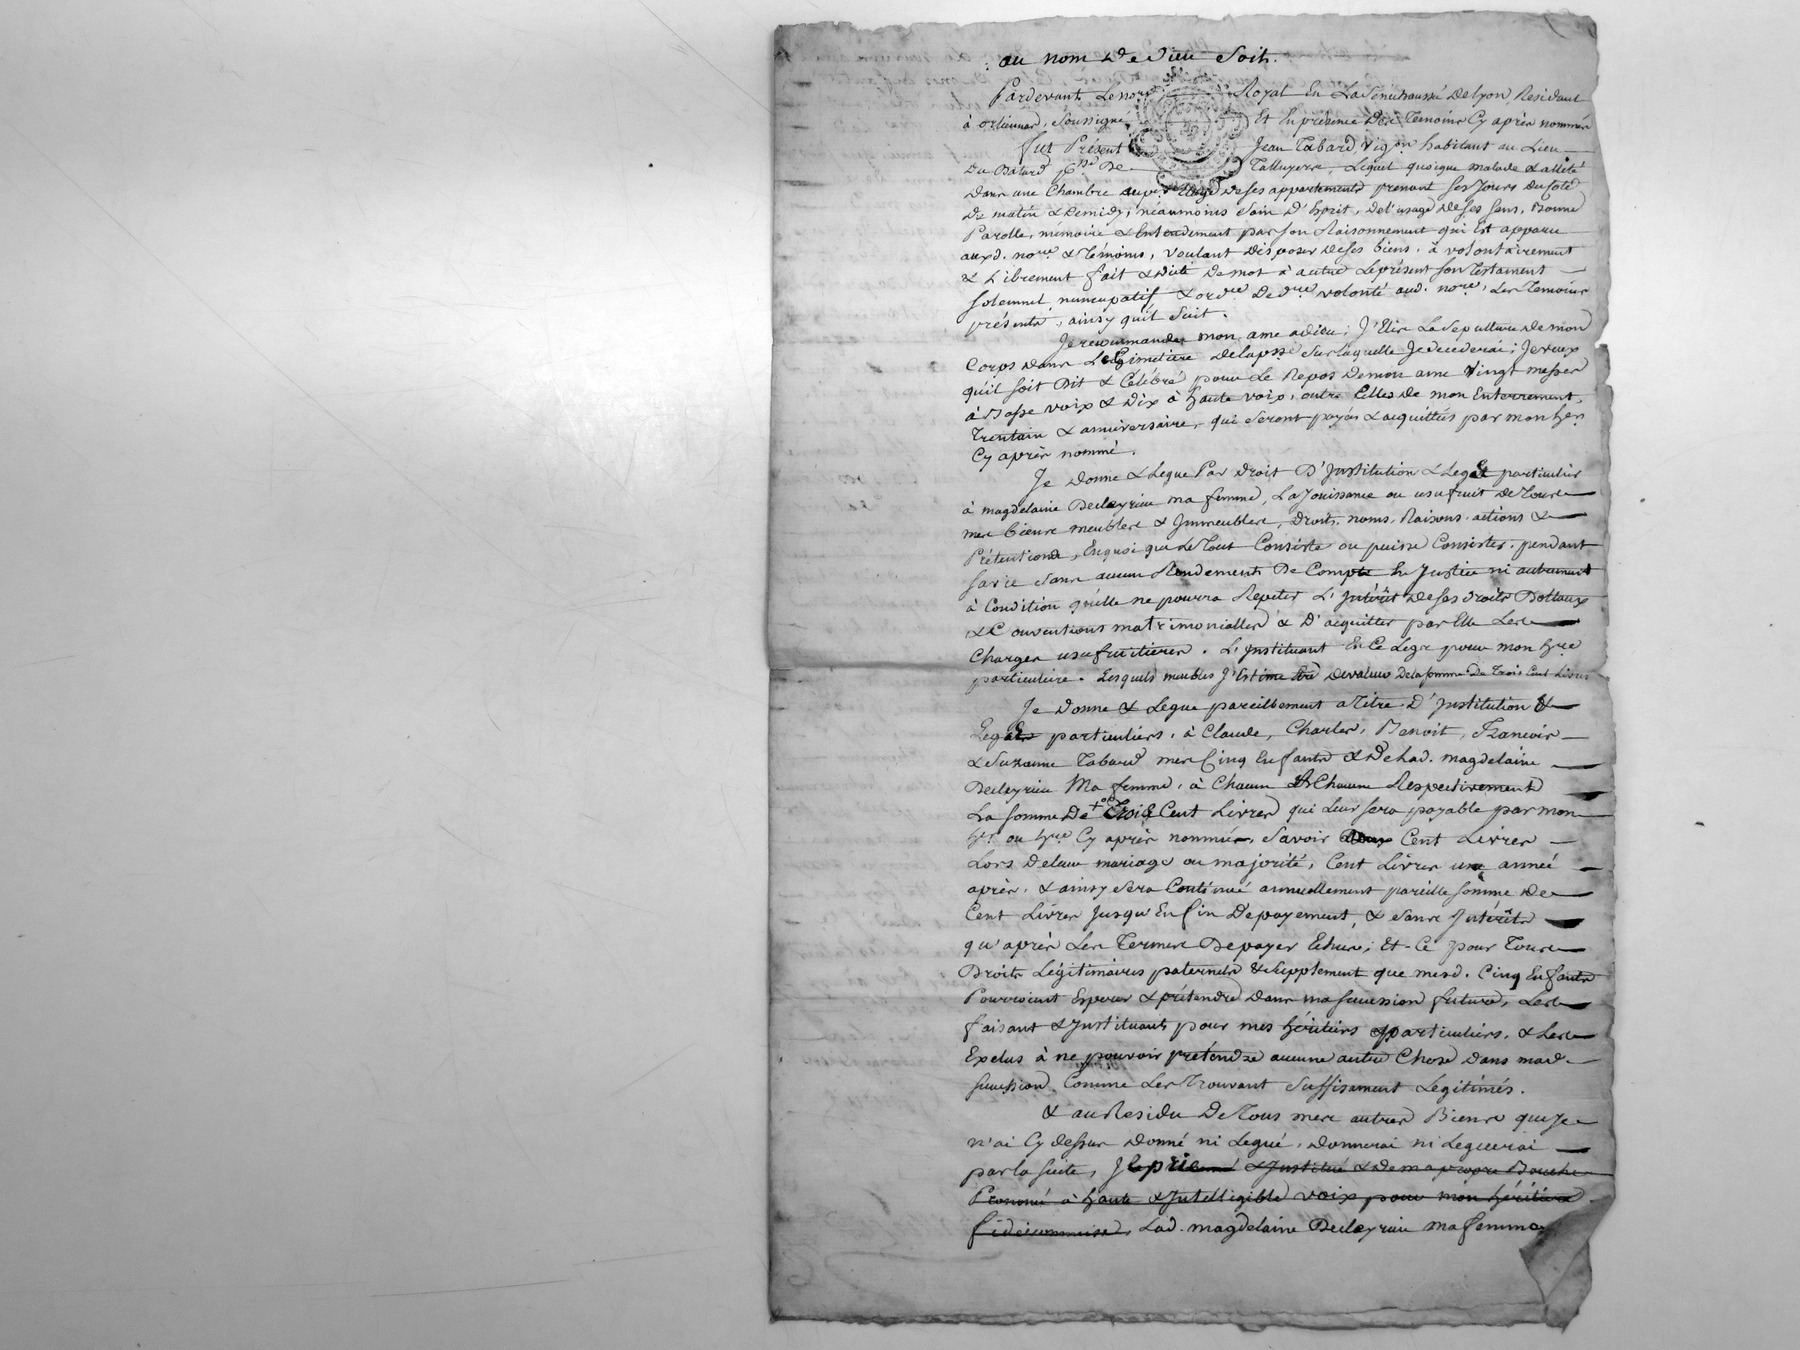 au nom De Dieu Soit.
Pardevant Le nore Royal En La Sénéchaussé De lyon, Residant
à orliennas, Soussigné, Et En présence Des Temoins Cy après nommés
fut Présent Jean Tabard vigon habitant au Lieu
Du Batard psse De Talluyers, Lequel quoique malade & allité
Dans une Chambre au per Etage De ses appartements prenant ses Jours du Coté
De matin & De midy, néaumoins Sain D'Esprit, De l'usage De ses sens, Bonne
Parolle, memoire & Entendement par son Raisonnement qui Est apparu
auxd. nore & Témoins, voulant Disposer De ses biens, à volontairement
& Librement fait & Dicté De mot à autre Le présent son Testament
solemnel nuncupatif & ordce De dre volonté aud. nore, Les Temoins
présents, ainsy qu'il Suit.
Je recommande mon ame a dieu; J'Elis La Sepulture de mon
Corps dans Le Cimetière De la psse Sur laquelle Je decederai; Je veux
qu'il soit Dit & Célébré pour Le Repos De mon ame Vingt messes
à Basse voix & Dix à haute voix, outre Celles De mon Enterrement,
Trentain & anniversaire, qui Seront payés & acquittés par mon her
Cy après nommé.
Je Donne & Legue Par Droit D'Institution & Legat particulier
à magdelaine Decleyrieu ma femme, La Jouissance ou usufruit De Tous
mes biens meubles & Immeubles, Droits, noms, Raisons, actions &
Prétentions, En quoi que Le Tout Consiste ou puisse Consister, pendant
sa vie Sans aucun Rendement De Compte En Justice ni autrement
à Condition qu'elle ne pourra Repeter L'Intérêt De ses Droits Dottaux
& Conventions matrimonialles & D'acquitter par Elle Les
Charges usufruitieres. L'Instituant En Ce Legs pour mon hre
particuliere. Lesquels meubles J'Estime Etre De valeur De la somme De Trois Cent Livres
Je Donne & Legue pareillement a Titre D'Institution &
Legats particuliers, à Claude, Charles, Benoit, Francois
& Suzanne Tabard mes Cinq Enfants & De Lad. magdelaine
Decleyrieu Ma femme, à Chacun & Chacune Respectivement
La Somme De Trois Cent Livres qui Leur sera payable par mon
her ou hre Cy après nommés, Savoir Cent Livres
Lors De leur mariage ou majorité, Cent Livres une année
après, & ainsy sera Continué annuellement pareille somme De
Cent Livres Jusqu'En fin De payement, & Sans Intérêts
qu'après Les Termes De payer Echus; Et Ce pour Tous
Droits Légitimaires paternels & Supplement que mesd. Cinq Enfants
Pourroient Esperer & prétendre Dans ma succession future, Les
faisant & Instituant pour mes héritiers particuliers, & Les
Exclus à ne pouvoir prétendre aucune autre Chose Dans mad.
succession Comme Les Trouvant Suffisament Legitimés.
& au Residu De Tous mes autres Biens que Je
n'ai Cy dessus Donné ni Legué, Donnerai ni Leguerai
par la suite, & Institué & De ma propre Bouche
Prononcé à haute & Intelligible voix pour mon héritiere
fideicommise, Lad. magdelaine Decleyrieu ma femme